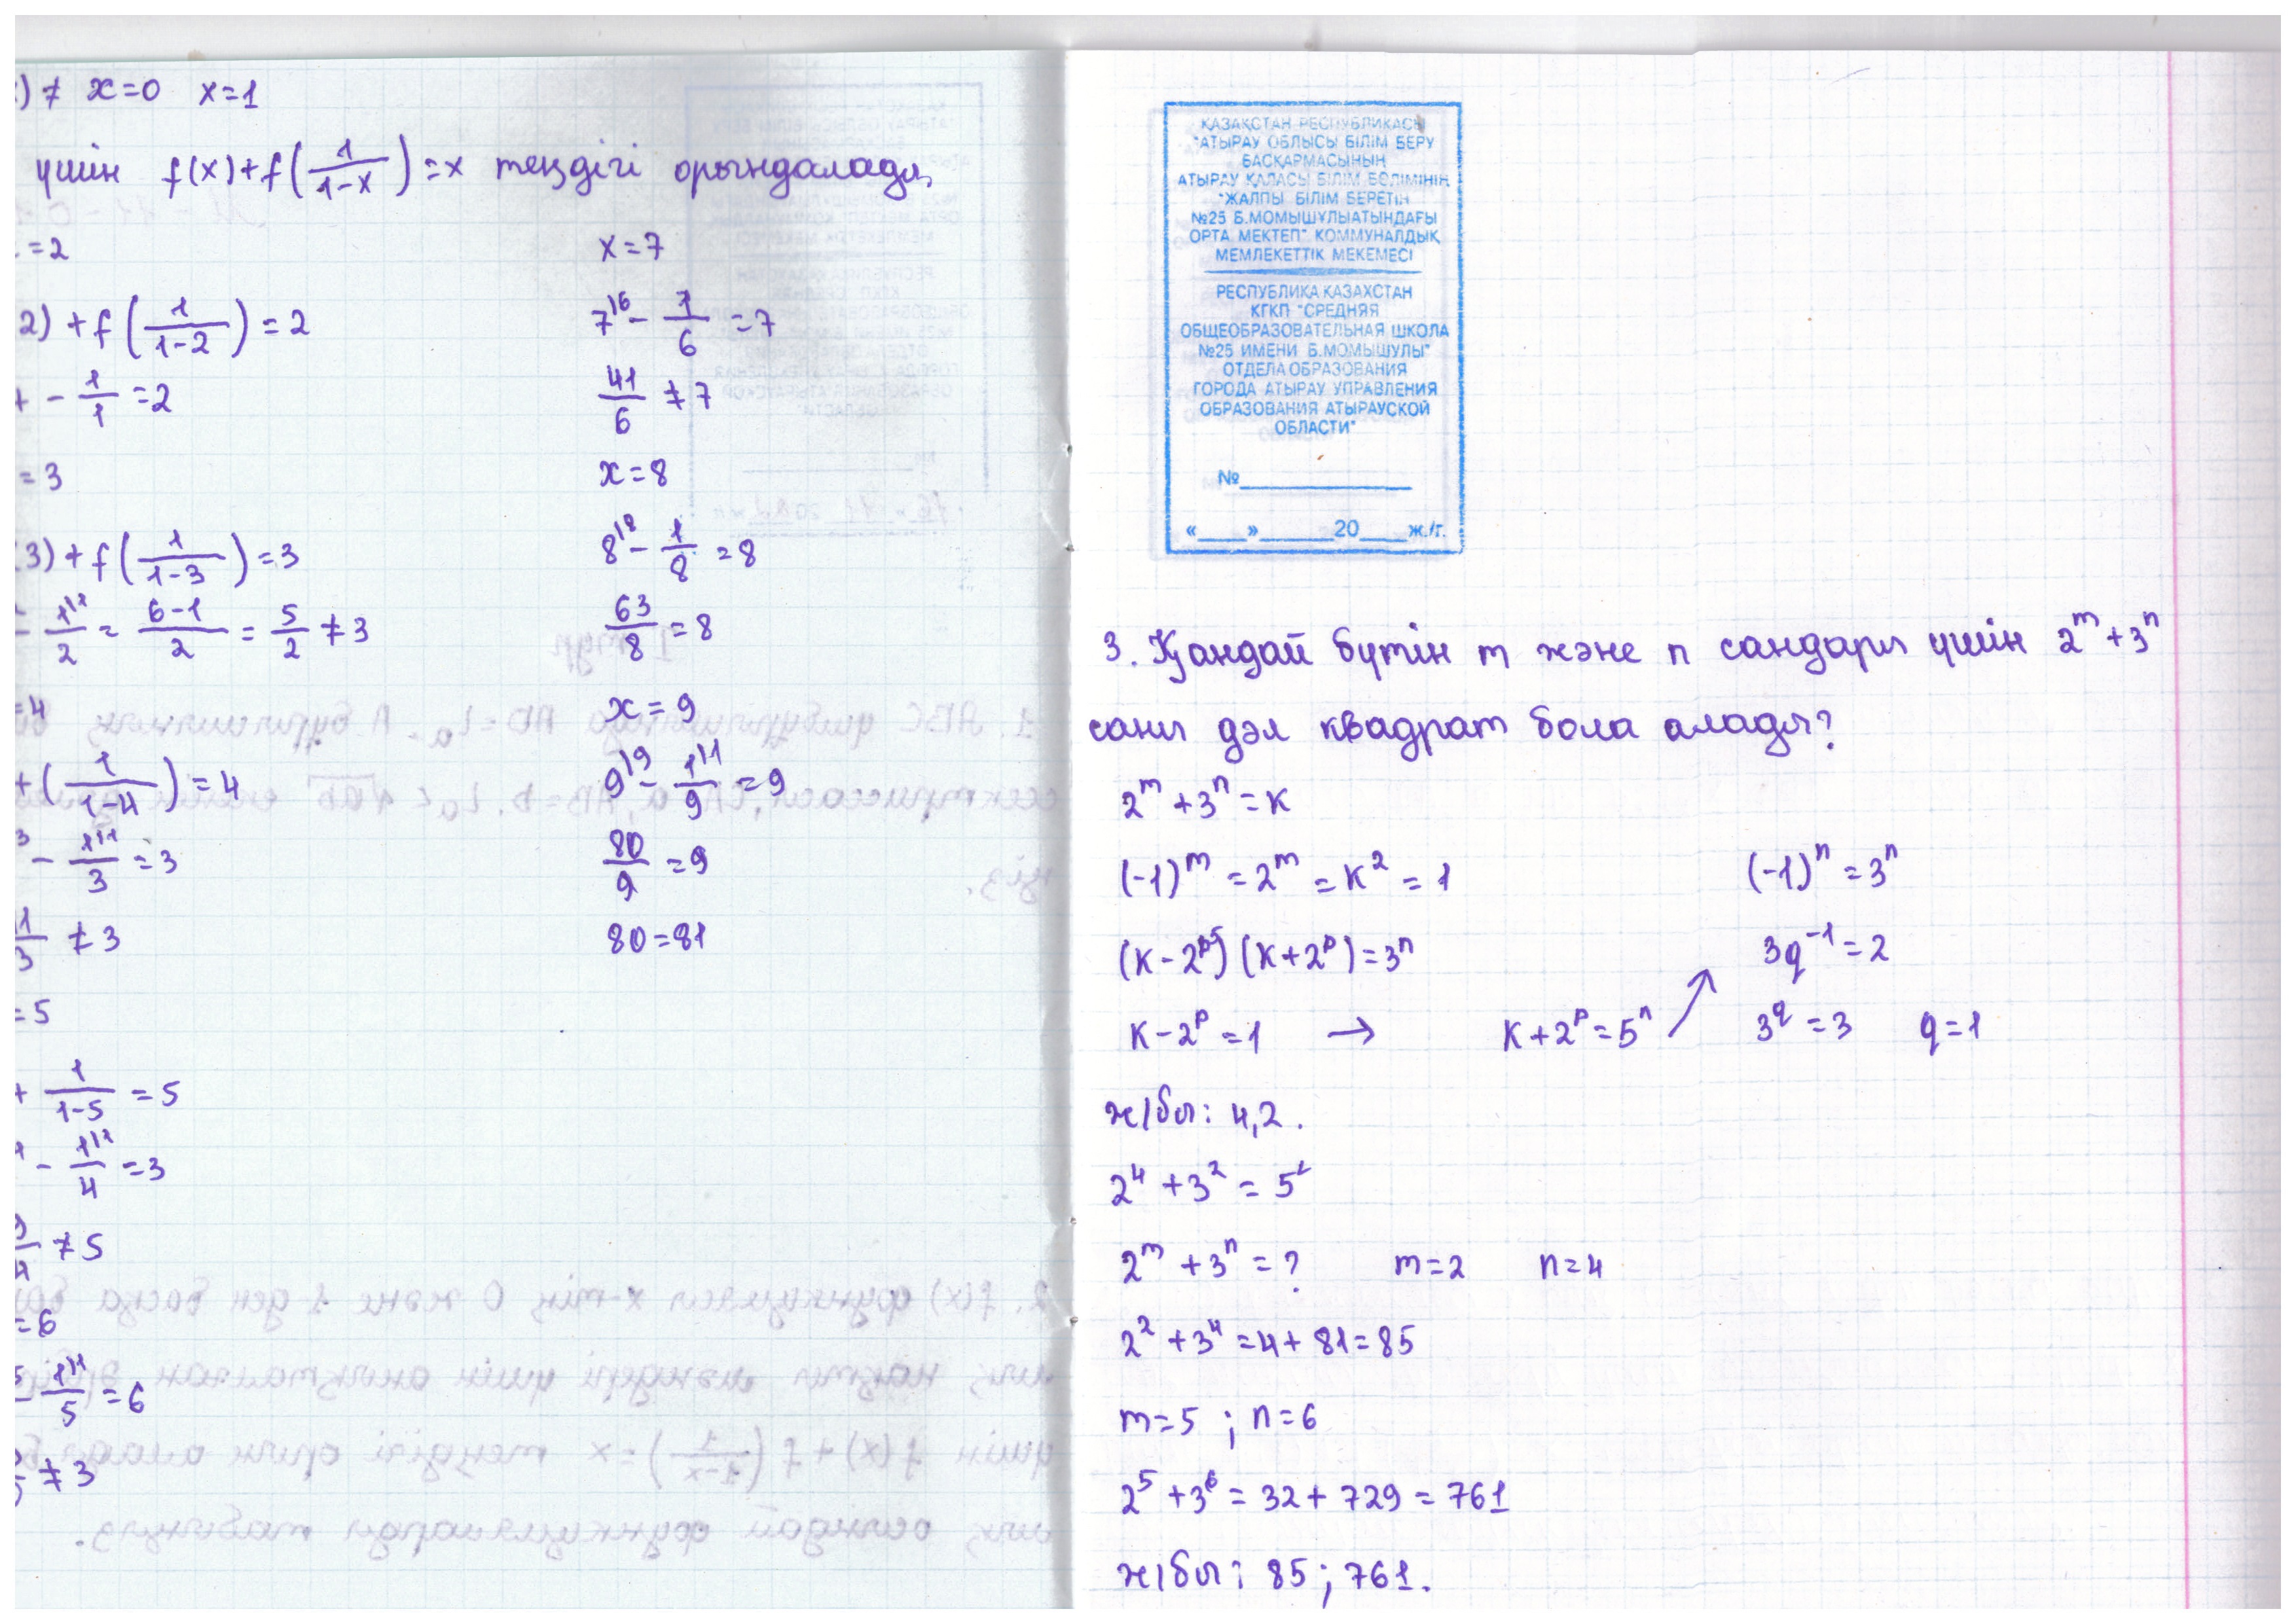 ) ≠ x=0 x=1
үшін f(x)+f(1/(1-x))=x теңдігі орындалады,
=2
2)+f(1/(1-2))=2
- 1/1 =2
=3
3)+f(1/(1-3))=3
- 1/2 = (6-1)/2 = 5/2 ≠3
=4
+(1/(1-4))=4
3 - 1/3 =3
11/3 ≠3
=5
+ 1/(1-5) =5
- 1/4 =3
≠5
=6
- 1/5 =6
≠3
x=7
7 - 1/6 =7
41/6 ≠7
x=8
8 - 1/8 =8
63/8 =8
x=9
9 - 1/9 =9
80/9 =9
80=81
ҚАЗАҚСТАН РЕСПУБЛИКАСЫ
"АТЫРАУ ОБЛЫСЫ БІЛІМ БЕРУ
БАСҚАРМАСЫНЫҢ
АТЫРАУ ҚАЛАСЫ БІЛІМ БӨЛІМІНІҢ
"ЖАЛПЫ БІЛІМ БЕРЕТІН
№25 Б.МОМЫШҰЛЫАТЫНДАҒЫ
ОРТА МЕКТЕП" КОММУНАЛДЫҚ
МЕМЛЕКЕТТІК МЕКЕМЕСІ
РЕСПУБЛИКА КАЗАХСТАН
КГКП "СРЕДНЯЯ
ОБЩЕОБРАЗОВАТЕЛЬНАЯ ШКОЛА
№25 ИМЕНИ Б.МОМЫШУЛЫ"
ОТДЕЛА ОБРАЗОВАНИЯ
ГОРОДА АТЫРАУ УПРАВЛЕНИЯ
ОБРАЗОВАНИЯ АТЫРАУСКОЙ
ОБЛАСТИ"
№
« » 20 ж./г.
3. Қандай бүтін m және n сандары үшін 2^m+3^n
саны дәл квадрат бола алады?
2^m+3^n=k
(-1)^m=2^m=k^2=1 (-1)^n=3^n
(k-2^p)(k+2^p)=3^n 3q^-1=2
k-2^p=1 → k+2^p=5^n ↗ 3^q=3 q=1
ж/бы: 4,2.
2^4+3^2=5^2
2^m+3^n=? m=2 n=4
2^2+3^4=4+81=85
m=5; n=6
2^5+3^6=32+729=761
ж/бы: 85; 761.